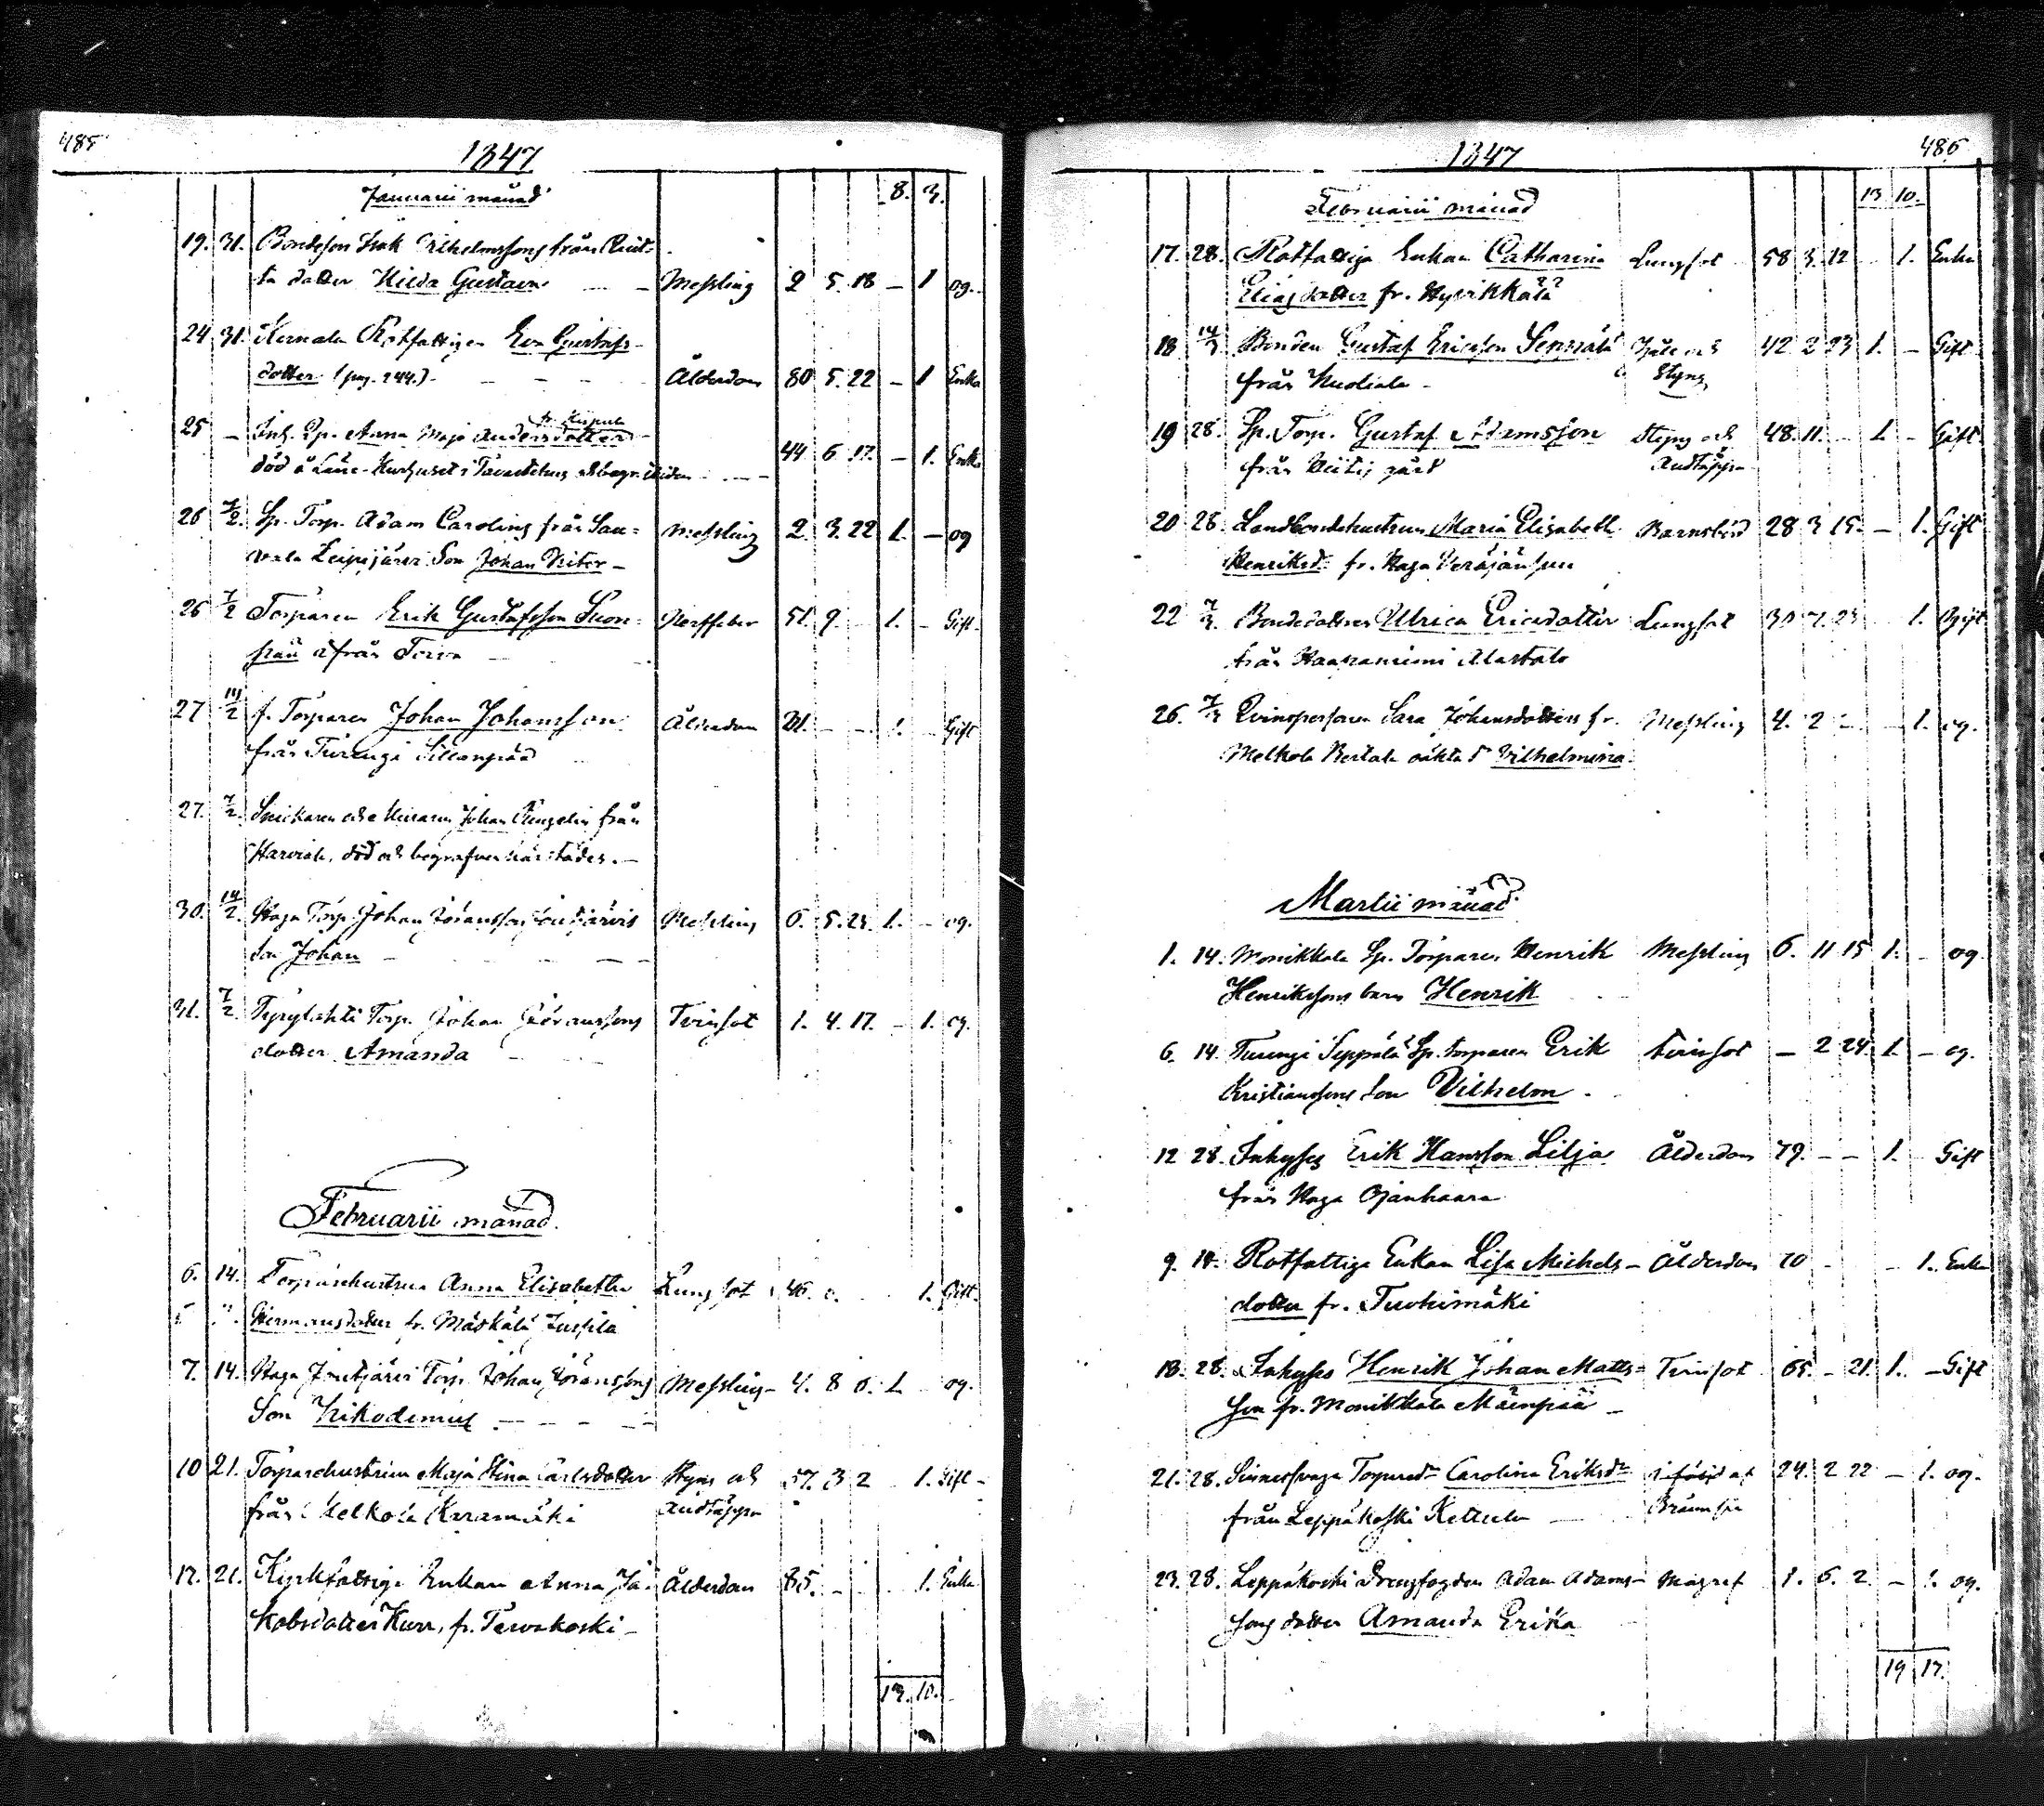 485
1847
Januarii månad 8. 3.
19. 31. Bondeson Isak Vilhelmssons från
ta dotter Hilda Gustava — Messling 2 5. 18 — 1 og.
24 31. Kernala Rotfattigen Eva Gustafs-
dotter (pag. 244.) — Ålderdom 80 5. 22 — 1 Enka
25 — Inh. Anna Maja Andersdotter
död å Läns-Kurhuset i Tavastehus 44 6 17. — 1. Enka
26 7/2. Sp. Torp. Adam Carolins från Sau=
vala Leipijärvi Son Johan Victor — Messling 2. 3. 22 1. — og
26 7/2 Torparen Erik Gustafsson Suon=
pää från Nerffeber 51. 9. 1. — Gift.
27 14/2 f. Torparen Johan Johansson Ålderdom 1. Gift
från Turengi Sillanpää
27. 7/2. Snickaren Johan från
Harviala, död och begrafven härstädes. —
30. 14/2. Haga Torp. Johan Joransson Messling 6. 5. 25. 1. — og.
Son Johan —
31. 7/2. Tyrylahti Torp. Johan Göranssons Tvinsot 1. 4. 17. — 1. og.
dotter Amanda
Februarii månad.
6. 14. Torparehustrun Anna Elisabetha Lungsot 46. 1. Gift.
Hermansdotter fr. Mäskälä Jussila
7. 14. Haga Torp. Johan Joranssons Messling — 4. 8 1. og.
Son Nikodemus —
10 21. Torparehustrun Maja Stina Carlsdotter Styng och 57. 3 2 1. Gift —
från Melkola Andtäppa
17. 21. Kyrkfattige Enkan Anna Ja- Ålderdom 85. — 1. Enka
kobsdotter Kurr, fr. Tervakoski —
13. 10.
486
1847
Februarii månad 13 10.
17. 28. Rotfattiga Enkan Catharina Lungsot 58 3. 12 1. Enka
Eliasdotter fr. Hyvikkälä
18 14/3 Bonden Gustaf Ericsson och 42 2 23 1. — Gift
från Styng
19 28. Sp. Torp. Gustaf Adamsson Styng och 48. 11. 1. — Gift
från gård Andtäppa
20 28. Landbondehustrun Maria Elisabeth Barnsbörd 28 3 15. — 1. Gift
Henriksd. fr. Haga
22 7/3. Bondedottren Ulrica Ericsdotter Lungsot 30 7. 23 1. Ogift
från Haapaniemi Alastalo
26. 7/3 Qvinspersonen Sara Johansdotters fr. Messling 4. 2 — 1. og.
Melkola oäkta d. Vilhelmina.
Martii månad.
1. 14. Monikkala Sp. Torparen Henrik Messling 6. 11 15 1. — og
Henrikssons barn Henrik
6. 14. Turengi Seppälä Sp. torparen Erik Tvinsot — 2 24. 1. — og.
Kristianssons Son Vilhelm.
12 28. Inhyses Erik Hansson Lilja Ålderdom 79. — — 1. Gift
från Haga Ojanhaara
9. 14. Rotfattige Enkan Lisa Michels- Ålderdom 70 — — 1. Enka
dotter fr. Tuohimäki
18. 28. Inhyses Henrik Johan Matts= Tvinsot 65. — 21. 1. — Gift
son fr. Monikkala Mäenpää —
21. 28. Sinnessvaga Torpared:r Carolina Eriksd:r 24. 2 22 — 1. og.
från Leppäkoski Kettula —
23. 28. Leppäkoski Drengfogden Adam Adams- Magref 1. 6. 2. — 1. og.
sons dotter Amanda Erika
19 17.